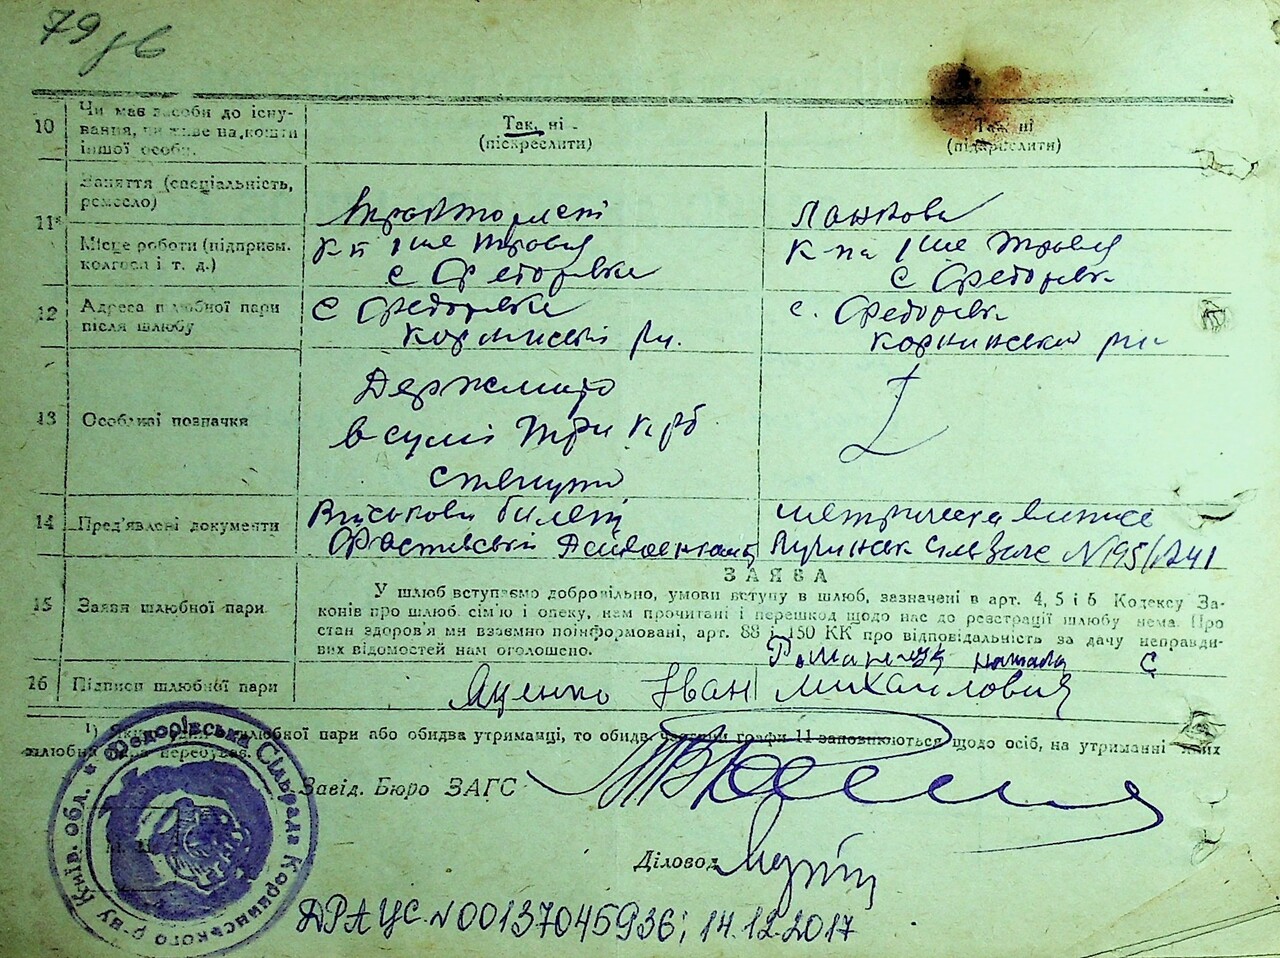 79 зв
10 Чи має засоби до існу-
вання, чи живе на кошти
іншої особи.
Так, ні
(підкреслити)
Так, ні
(підкреслити)
11
Заняття (спеціальність,
ремесло)
тракторист
ланкова
Місце роботи (підприєм.
колгосп і т. д.)
К-п 1ше травня
с Федорівка
К-па 1ше травня
с Федорівка
12 Адреса шлюбної пари
після шлюбу
с Федорівка
Корнинській р-н.
с. Федорівка
Корнинський р-н
13 Особливі позначки
Держмито
в сумі три крб
стягнуто
14 Пред'явлені документи
Військовий билет
метрическа виписс
N 195/1241
15 Заява шлюбної пари
ЗАЯВА
У шлюб вступаємо добровільно, умови вступу в шлюб, зазначені в арт. 4, 5 і 6 Кодексу За-
конів про шлюб, сім'ю і опеку, нам прочитані і перешкод щодо нас до реєстрації шлюбу нема. Про
стан здоров'я ми взаємно поінформовані, арт. 88 і 150 КК про відповідальність за дачу неправди-
вих відомостей нам оголошено.
16 Підписи шлюбної пари
Яценко Іван Михайлович
Романчук Натала С
шлюбної пари або обидва утриманці, то обидві частини графи 11 заповнюються щодо осіб, на утриманні яких
шлюбна пара перебуває.
Завід. Бюро ЗАГС
Діловод
Федорівська Сільрада Корнинського р-ну Київ. обл.
ДРАЦС N00137045936; 14.12.2017